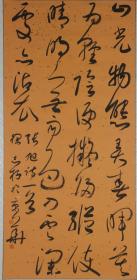 山光物態弄春暉莫
為輕陰便擬歸縱使
晴明無雨色入雲深
處亦沾衣
張旭詩